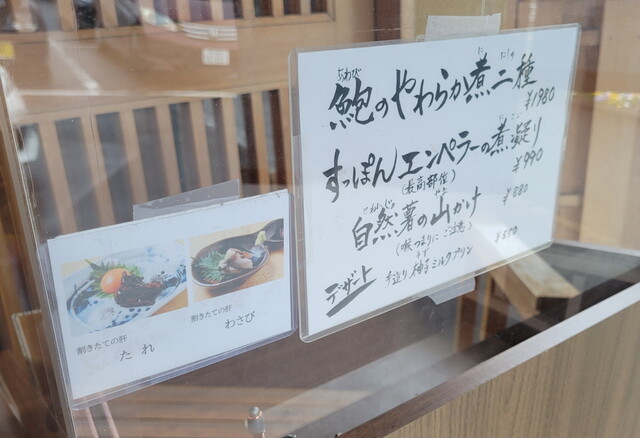 あわび に にしゅ
鮑のやわらか煮二種
¥1980
に こご
すっぽんエンペラーの煮凝り
(最高部位)
¥990
じねんじょ やま
自然薯の山かけ
(喉つまりにご注意)
¥880
デザート
手造り 柚子ミルクプリン
¥550
割きたての肝
たれ
割きたての肝
わさび